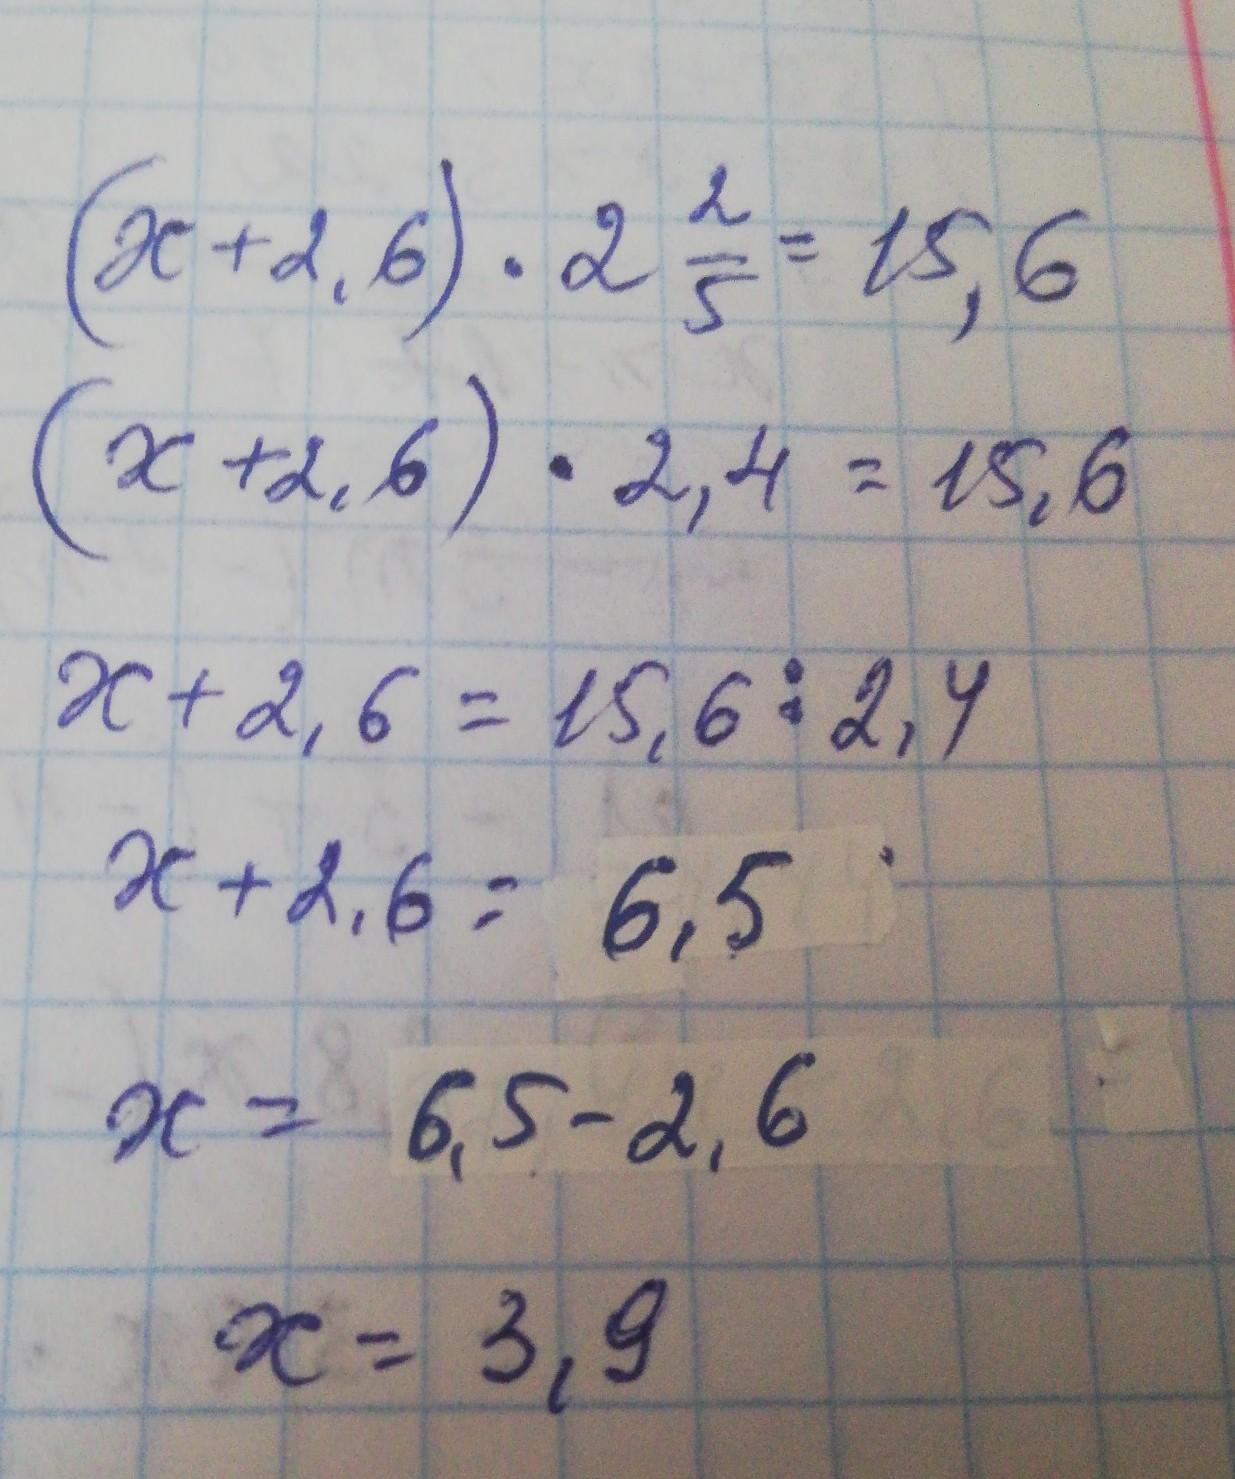 (x + 2,6) · 2 2/5 = 15,6
(x + 2,6) · 2,4 = 15,6
x + 2,6 = 15,6 : 2,4
x + 2,6 = 6,5
x = 6,5 - 2,6
x = 3,9